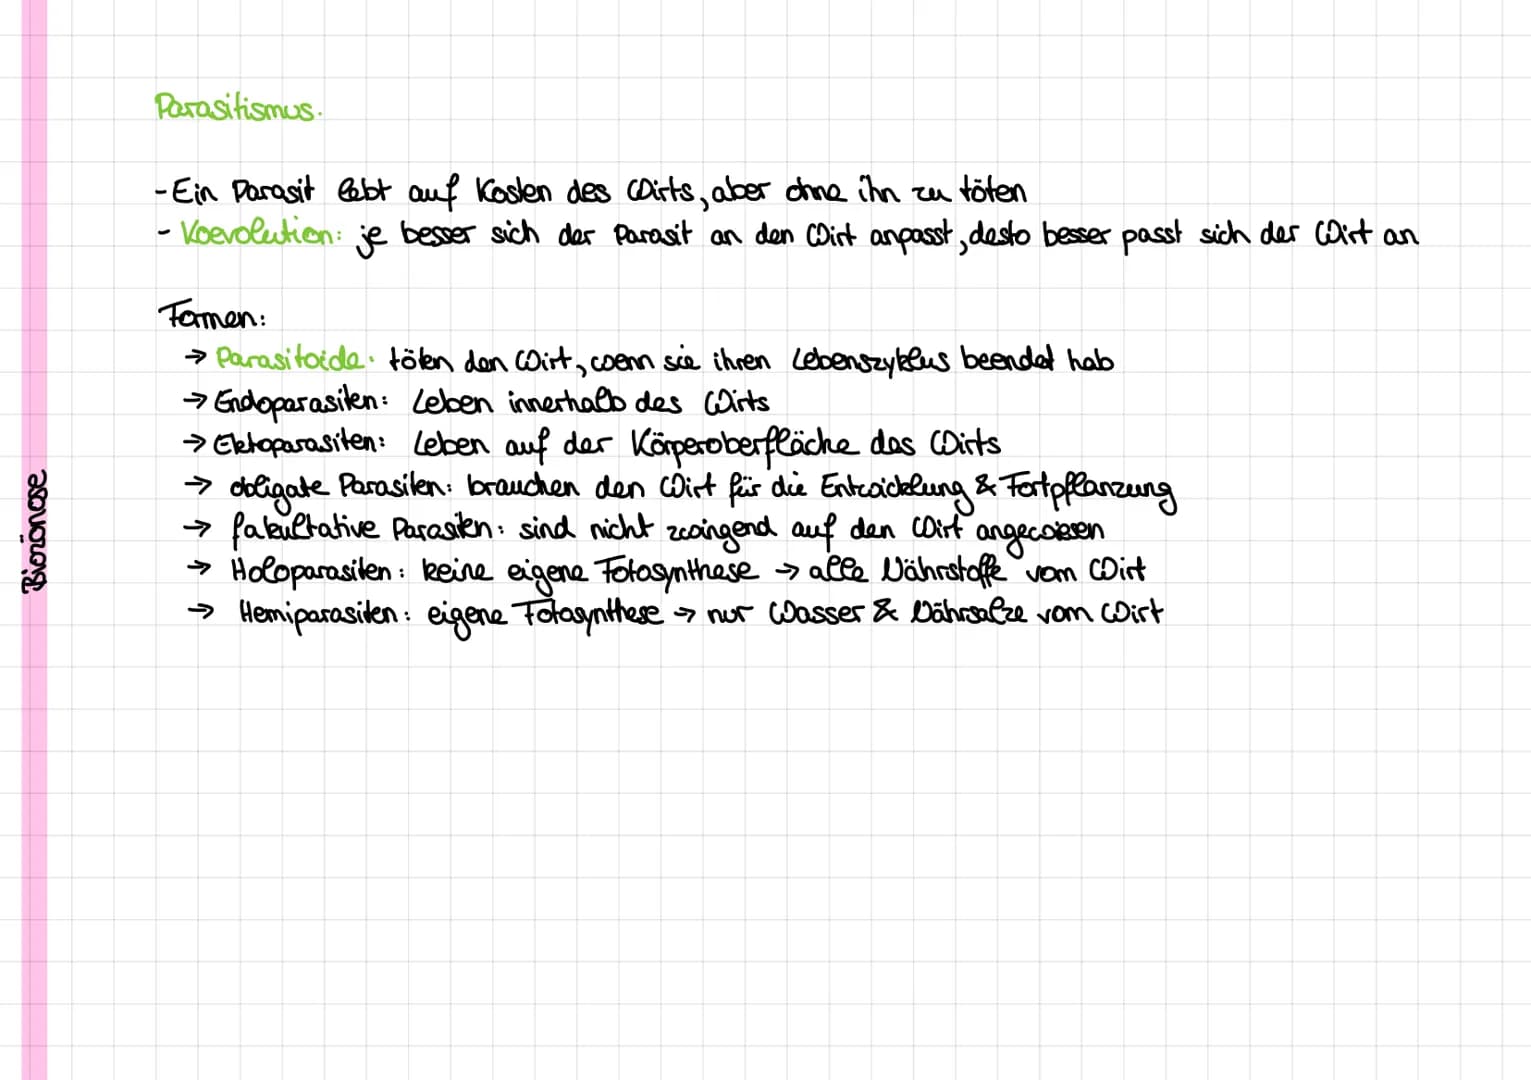 Parasitismus.
- Ein Parasit lebt auf Kosten des Wirts, aber ohne ihn zu töten
- Koevolution: je besser sich der Parasit an den Wirt anpasst, desto besser passt sich der Wirt an
Formen:
→ Parasitoide: töten den Wirt, wenn sie ihren Lebenszyklus beendet hab
→ Endoparasiten: Leben innerhalb des Wirts
→ Ektoparasiten: Leben auf der Körperoberfläche des Wirts
→ obligate Parasiten: brauchen den Wirt für die Entwicklung & Fortpflanzung
→ fakultative Parasiten: sind nicht zwingend auf den Wirt angewiesen
→ Holoparasiten: keine eigene Fotosynthese → alle Nährstoffe vom Wirt
→ Hemiparasiten: eigene Fotosynthese → nur Wasser & Nährsalze vom Wirt
Biozönose